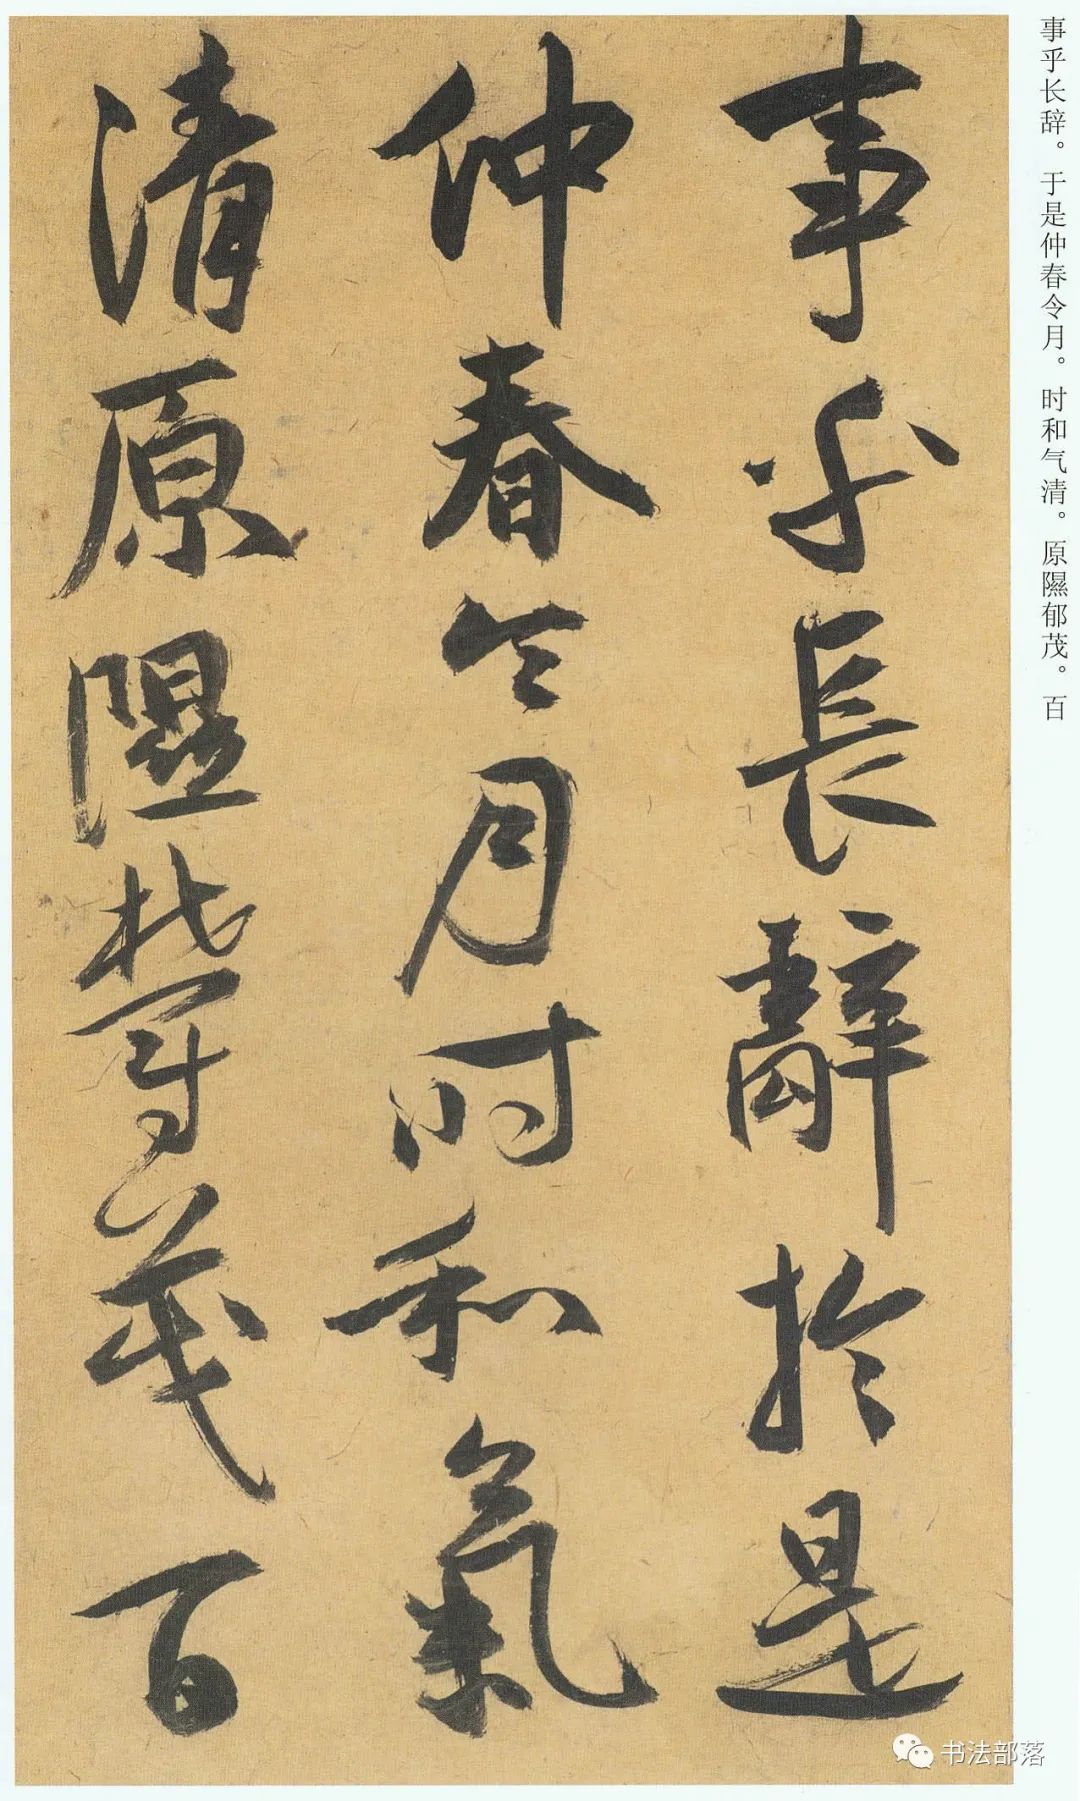 事乎长辞。于是仲春令月。时和气清。原隰郁茂。百
事乎長辭於是
仲春令月時和氣
清原隰鬱茂百
书法部落